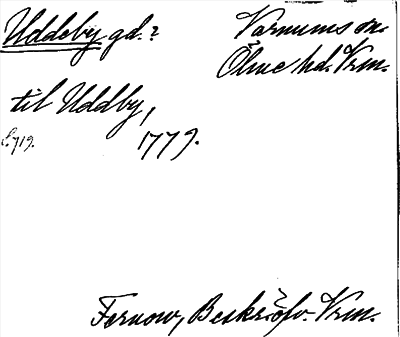 Uddeby gd.?
Varnums sn.
Ölme hd. Vrm.
til Uddby,
s. 719. 1779.
Fernow, Beskrifv. Vrm.